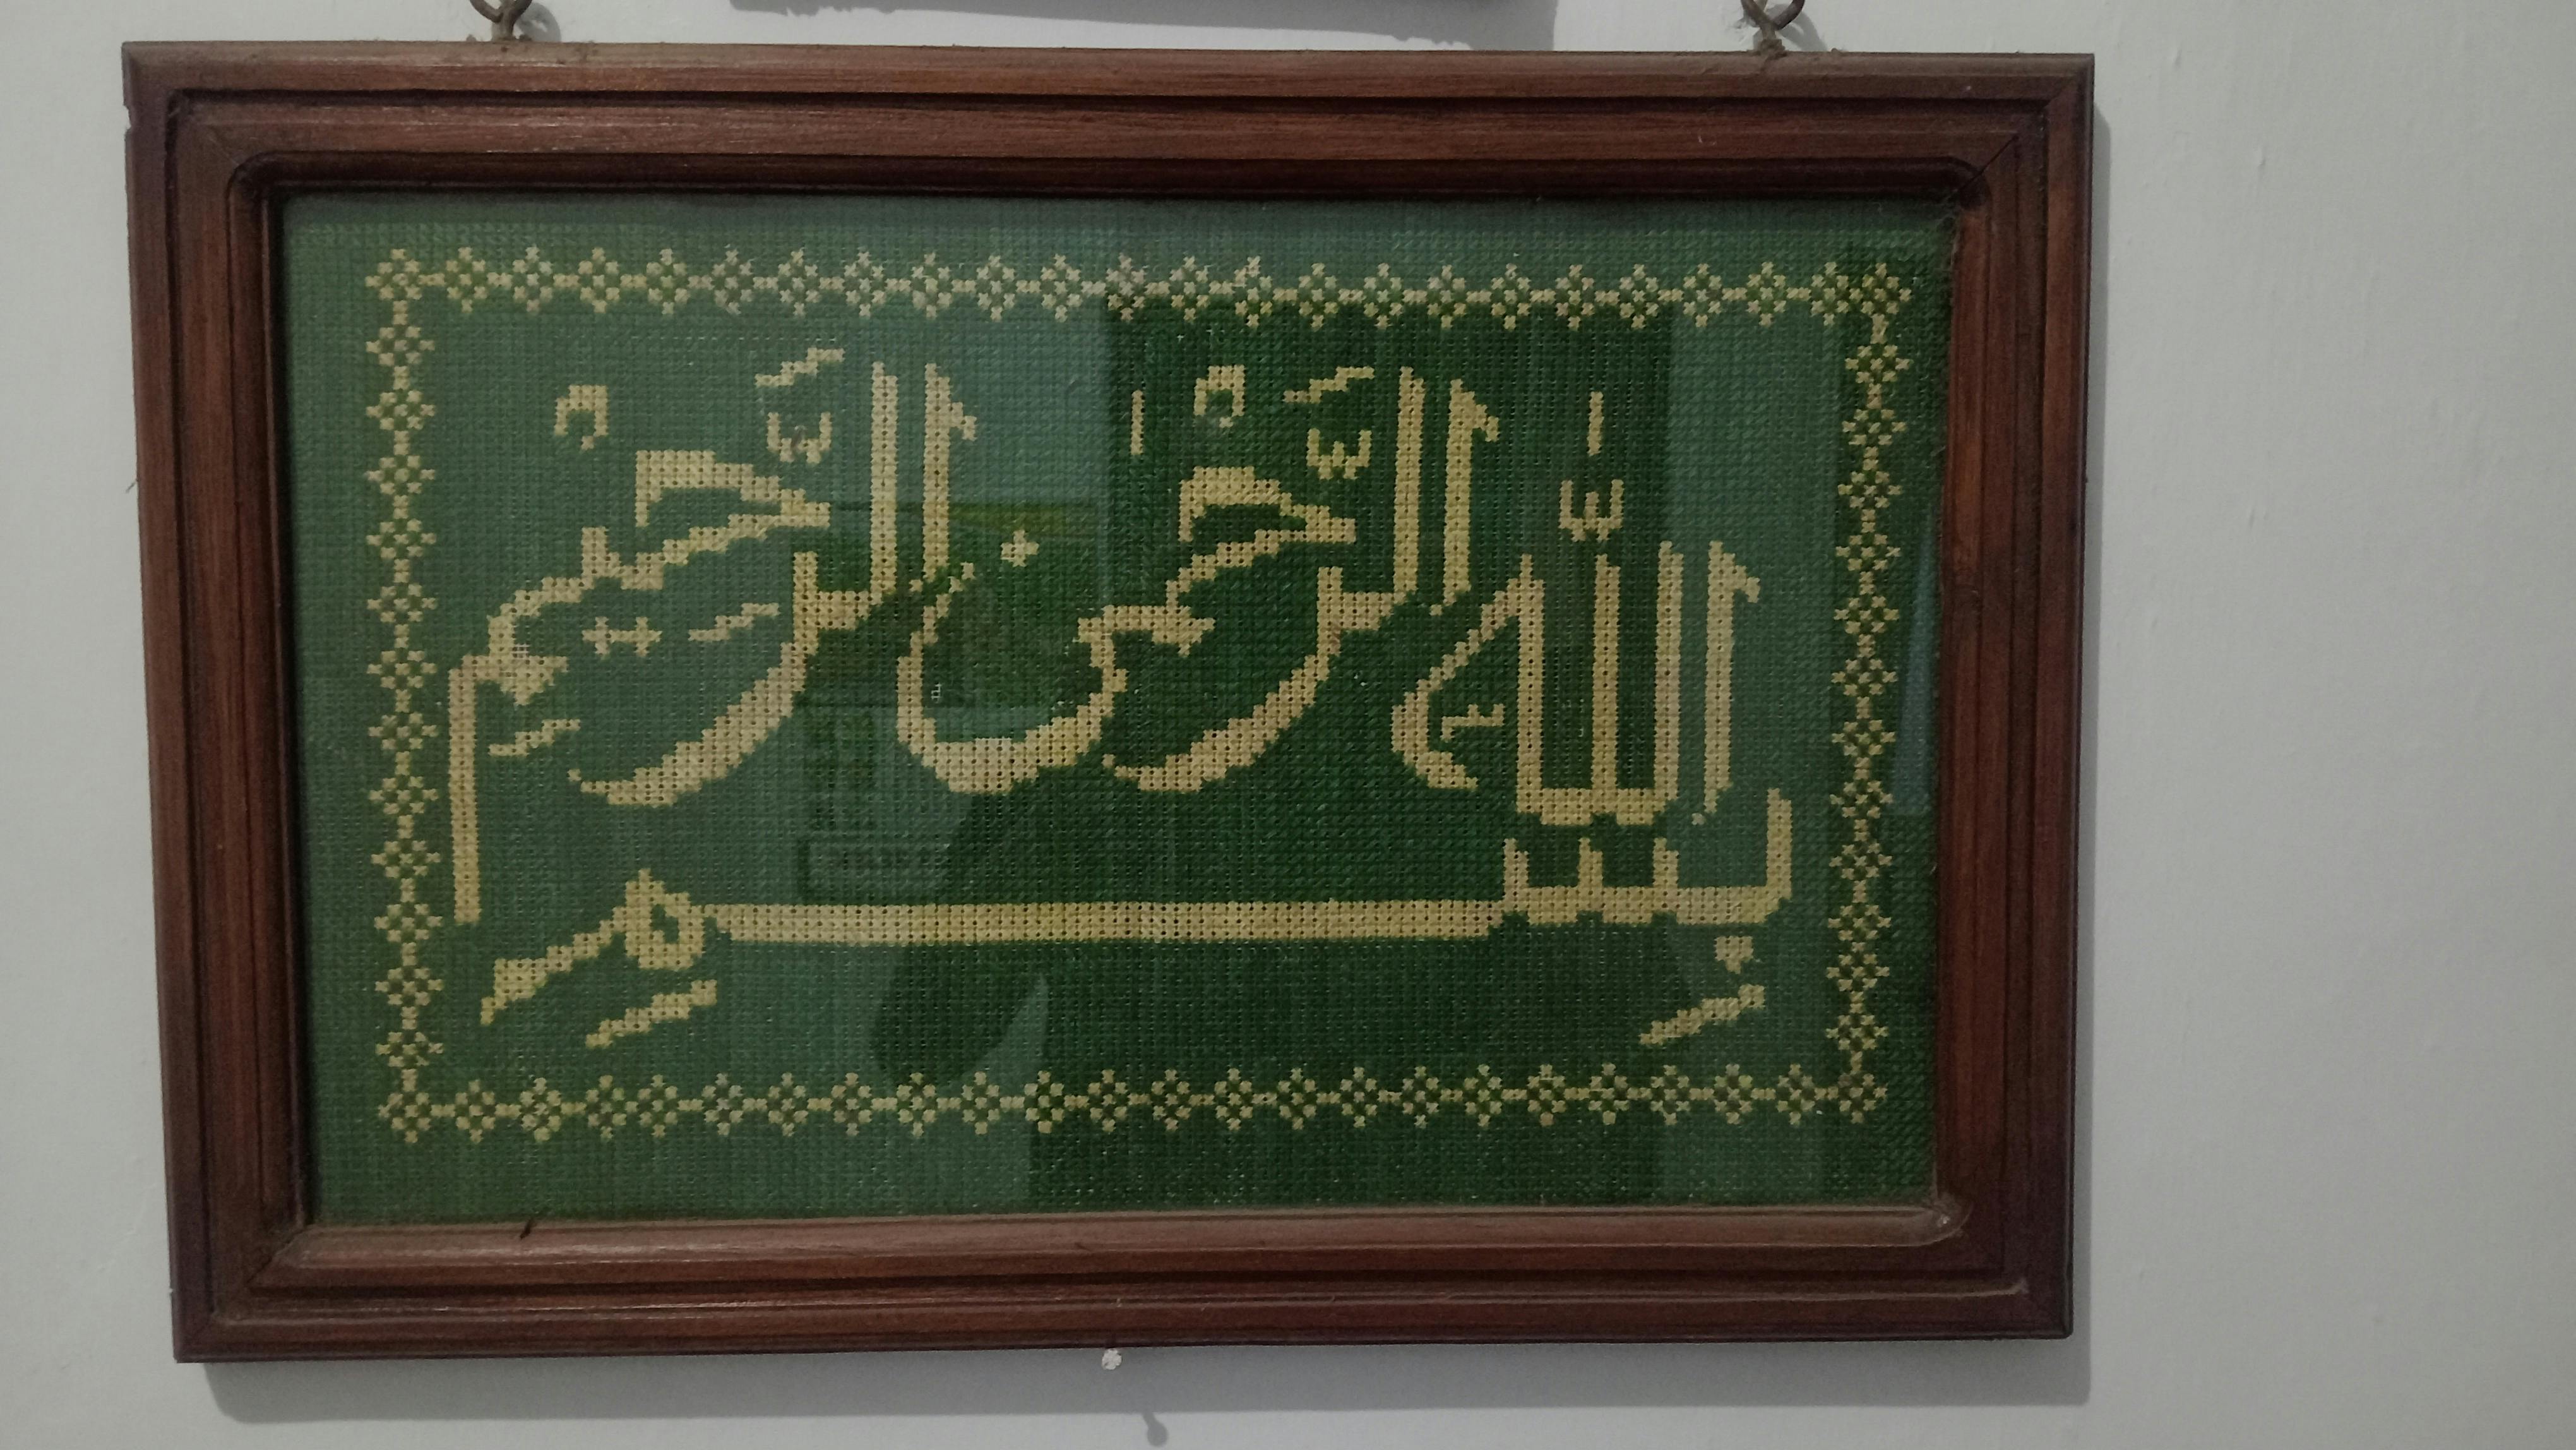 بِسْمِ
اللّٰهِ الرَّحْمٰنِ الرَّحِيْمِ